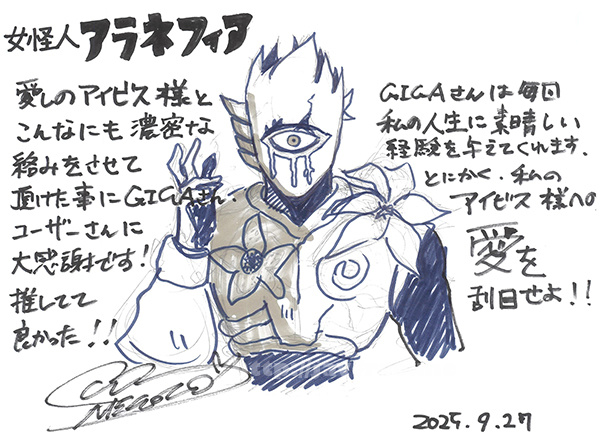 女怪人 アラネフィア
愛しのアイビス様と
こんなにも濃密な
絡みをさせて
頂けた事にGIGAさん、
ユーザーさんに
大感謝です!
推してて
良かった!!
GIGAさんは毎回
私の人生に素晴しい
経験を与えてくれます、
とにかく、私の
アイビス様への
愛を
刮目せよ!!
2025.9.27